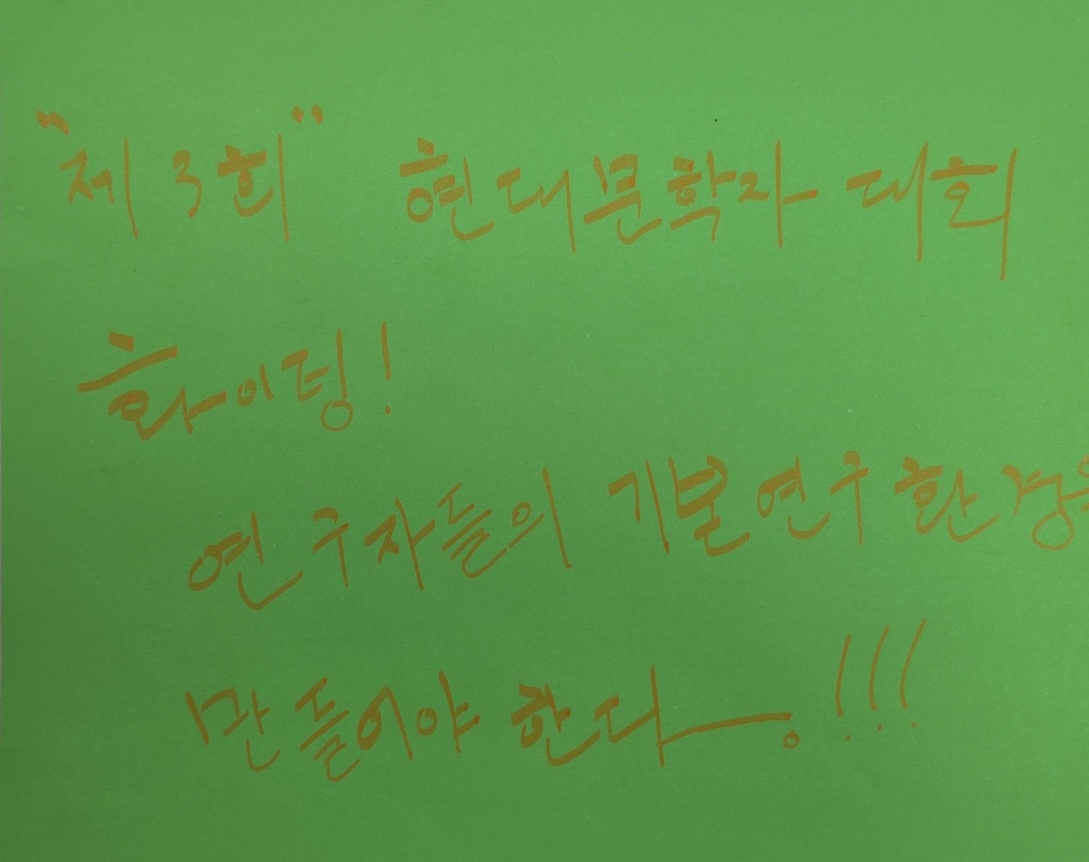 "제 3회" 현대문학자 대회
화이팅!
연구자들의 기본연구 환경을
만들어야 한다. !!!